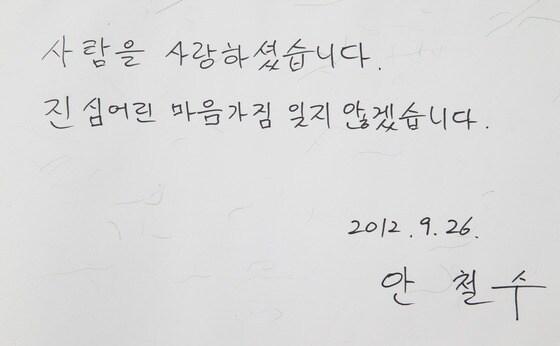 사람을 사랑하셨습니다.
진심어린 마음가짐 잊지 않겠습니다.
2012.9.26.
안 철수